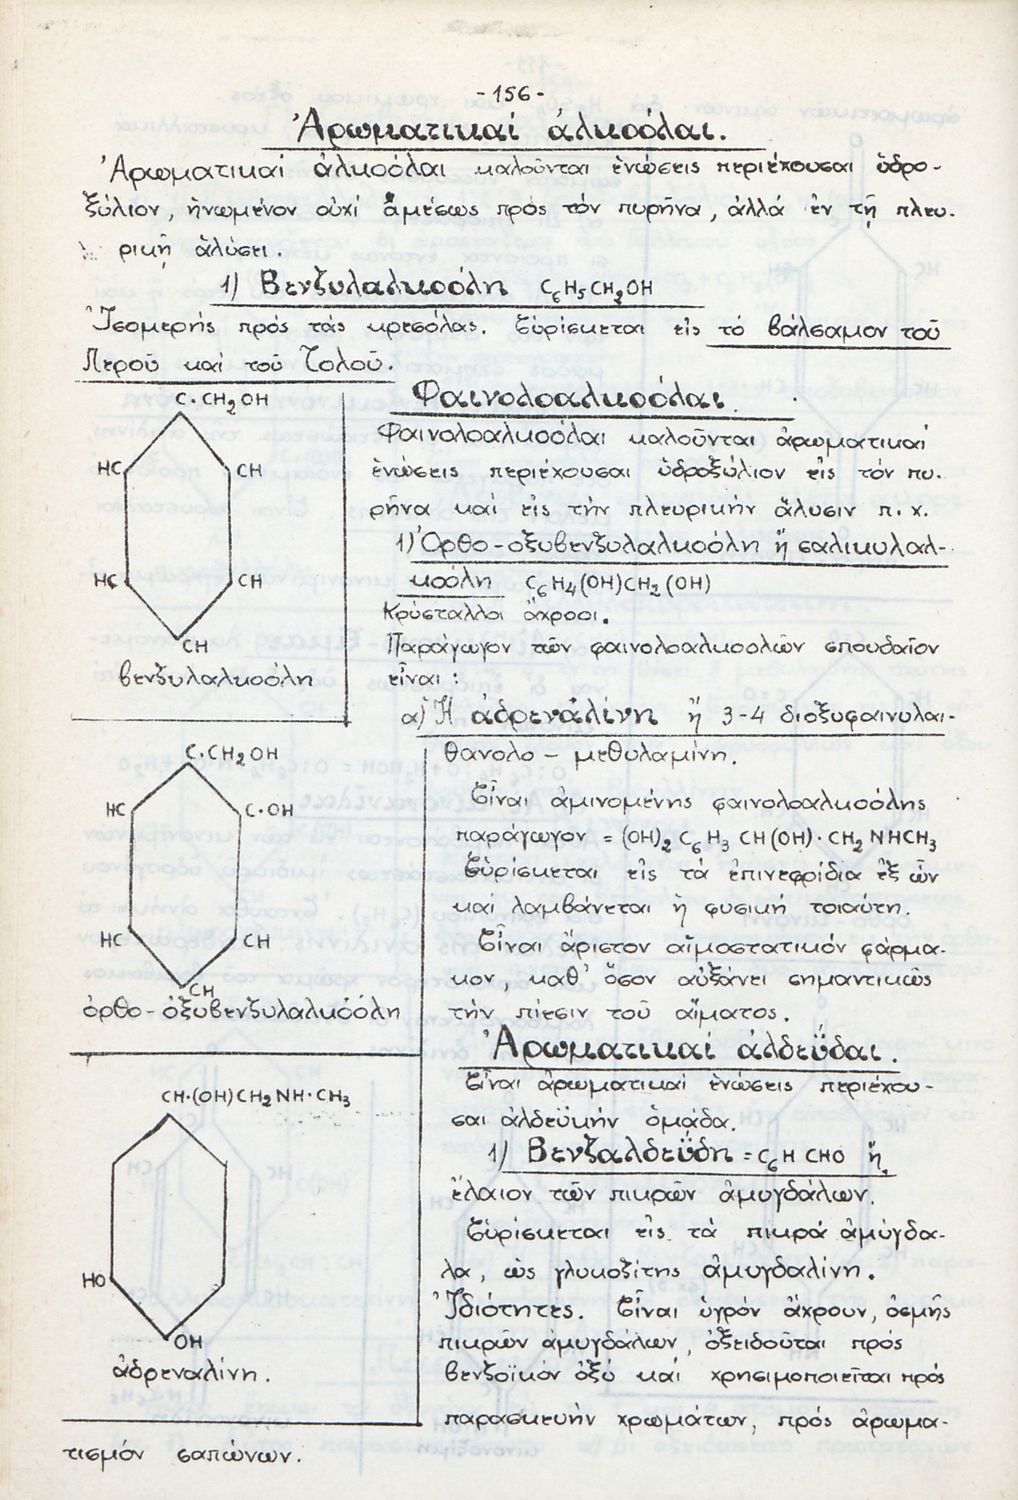 -156-
Ἀρωματικαί ἀλκοόλαι.
Ἀρωματικαί ἀλκοόλαι καλοῦνται ἑνώσεις περιέχουσαι ὑδρο-
ξύλιον, ἡνωμένον οὐχί ἀμέσως πρός τόν πυρῆνα, ἀλλά ἐν τῇ πλευ-
ρικῇ ἁλύσει.
1) Βενζυλαλκοόλη C6H5CH2OH
Ἰσομερής πρός τάς κρεσόλας. Εὑρίσκεται εἰς τό βάλσαμον τοῦ
Περοῦ καί τοῦ Τολοῦ.
C·CH2OH
HC
CH
HC
CH
CH
βενζυλαλκοόλη
Φαινολοαλκοόλαι
Φαινολοαλκοόλαι καλοῦνται ἀρωματικαί
ἑνώσεις περιέχουσαι ὑδροξύλιον εἰς τόν πυ-
ρῆνα καί εἰς τήν πλευρικήν ἄλυσιν π.χ.
1) Ὀρθο-οξυβενζυλαλκοόλη ἤ σαλικυλαλ-
κοόλη C6H4(OH)CH2(OH)
Κρύσταλλοι ἄχροοι.
Παράγωγον τῶν φαινολοαλκοολῶν σπουδαῖον
εἶναι:
α) Ἡ ἀδρεναλίνη ἤ 3-4 διοξυφαινυλαι-
θανολο - μεθυλαμίνη.
C·CH2OH
HC
C·OH
HC
CH
CH
ὀρθο-ὀξυβενζυλαλκοόλη
Εἶναι ἀμινομένης φαινολοαλκοόλης
παράγωγον = (OH)2 C6H3 CH(OH)·CH2 NHCH3
Εὑρίσκεται εἰς τά ἐπινεφρίδια ἐξ ὧν
καί λαμβάνεται ἡ φυσική τοιαύτη.
Εἶναι ἄριστον αἱμοστατικόν φάρμα-
κον, καθ' ὅσον αὐξάνει σημαντικῶς
τήν πίεσιν τοῦ αἵματος.
Ἀρωματικαί ἀλδεΰδαι.
Εἶναι ἀρωματικαί ἑνώσεις περιέχου-
σαι ἀλδεϋκήν ὁμάδα.
1) Βενζαλδεΰδη = C6H CHO ἤ
ἔλαιον τῶν πικρῶν ἀμυγδάλων.
Εὑρίσκεται εἰς τά πικρά ἀμύγδα-
λα, ὡς γλυκοζίτης ἀμυγδαλίνη.
CH·(OH)CH2NH·CH3
HO
OH
ἀδρεναλίνη.
Ἰδιότητες. Εἶναι ὑγρόν ἄχρουν, ὀσμῆς
πικρῶν ἀμυγδάλων, ὀξειδοῦται πρός
βενζοϊκόν ὀξύ καί χρησιμοποιεῖται πρός
παρασκευήν χρωμάτων, πρός ἀρωμα-
τισμόν σαπώνων.